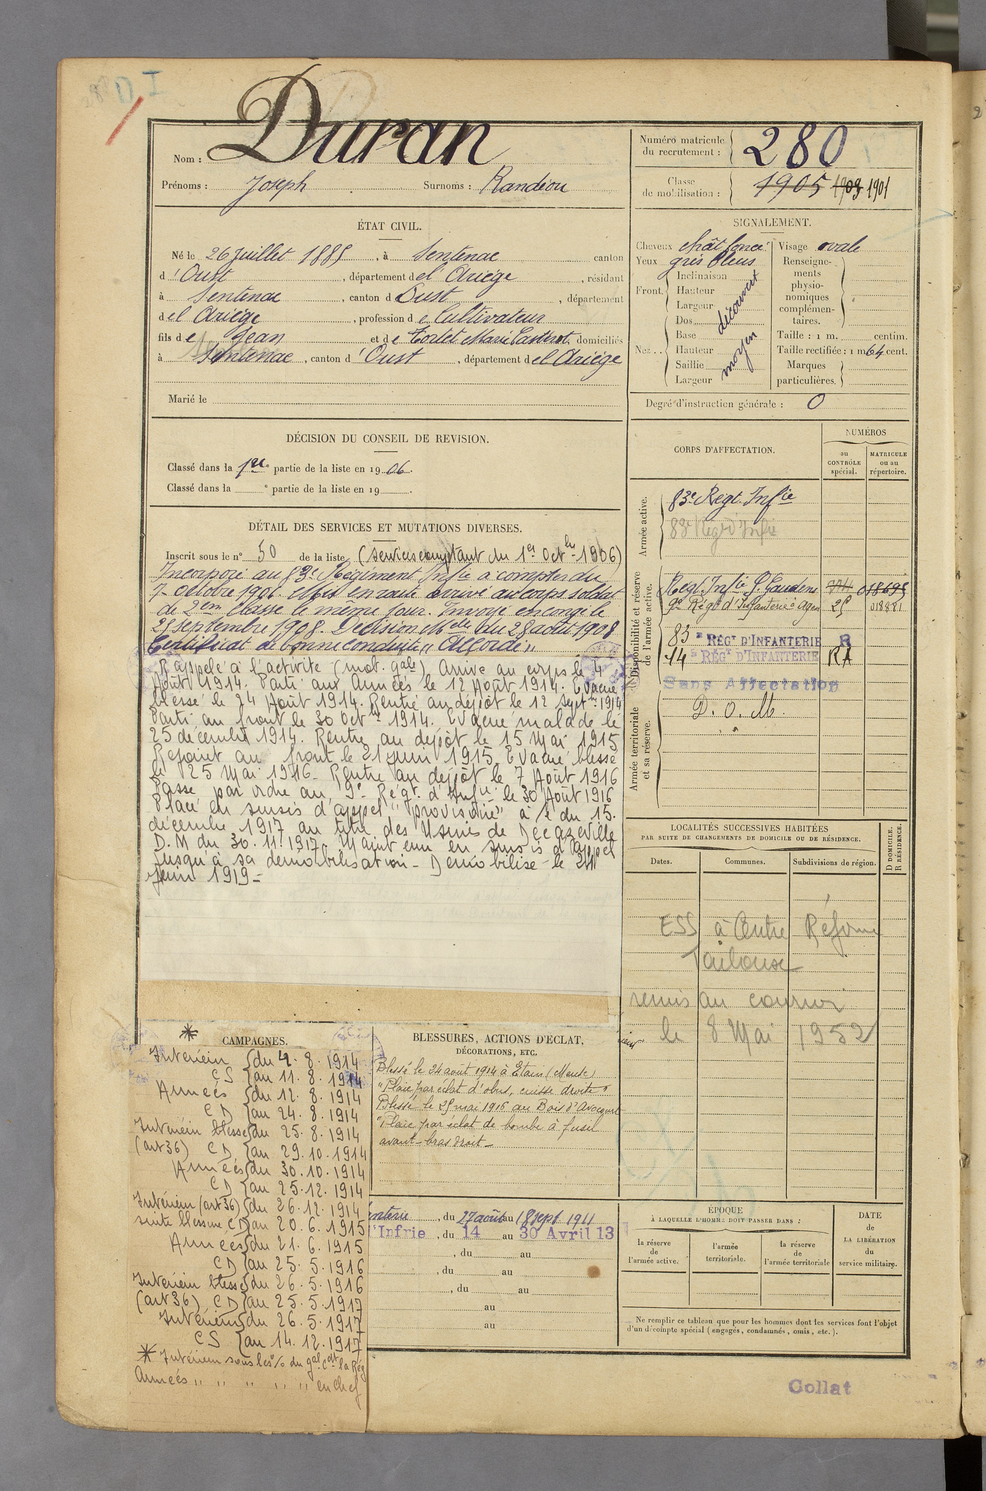 Nom : Duran
Prénoms : Joseph Surnoms : Randéou
Numéro matricule du recrutement : 280
Classe de mobilisation : 1905 1903 1901
ÉTAT CIVIL.
Né le 26 Juillet 1885, à Sentenac canton
d'Oust, département del Ariège, résidant
à Sentenac, canton d Oust, département
del Ariège, profession de Cultivateur
fils de Jean et de Toulet Marie domiciliés
à Sentenac, canton d'Oust, département del Ariège
Marié le
SIGNALEMENT.
Cheveux chât foncé Visage ovale
Yeux gris bleus
Front. Inclinaison Hauteur Largeur découvert
Nez. Dos Base Hauteur Saillie Largeur moyen
Renseignements physionomiques complémentaires.
Taille : 1 m. centim.
Taille rectifiée : 1 m 64 cent.
Marques particulières.
Degré d'instruction générale : 0
DÉCISION DU CONSEIL DE REVISION.
Classé dans la 1re partie de la liste en 1906.
Classé dans la e partie de la liste en 19 .
DÉTAIL DES SERVICES ET MUTATIONS DIVERSES.
Inscrit sous le n° 50 de la liste (services comptant du 1er Octbre 1906)
Incorporé au 83e Régiment Infie à compter du
7 octobre 1906. Mis en route arrivé au corps soldat
de 2em classe le même jour. Envoyé en congé le
25 septembre 1908. Décision Mlle du 28 août 1908
Certificat de bonne conduite "Accordé"
Rappelé à l'activité (mob. gale) Arrivé au corps le 4
Août 1914. Parti aux Armées le 12 Août 1914. Evacué
blessé le 24 Août 1914. Rentré au dépôt le 12 Sept 1914
Parti au front le 30 Octre 1914. Evacué malade le
25 décembre 1914. Rentré au dépôt le 15 Mai 1915
Rejoint au front le 21 juin 1915. Evacué blessé
le 25 Mai 1916. Rentré au dépôt le 7 Août 1916
Passé par ordre au 9e Régt. d'Infie le 30 Août 1916
Placé en sursis d'appel "provisoire" à c du 15.
décembre 1917 au titre des Usines de Decazeville
D.M du 30.11.1917. Maintenu en sursis d'appel
jusqu'à sa démobilisation - Démobilisé le
juin 1919 -
CORPS D'AFFECTATION.
NUMÉROS
au CONTRÔLE spécial.
MATRICULE ou au répertoire.
Armée active.
83e Régt. Infie
88e Régt d'Infie
Disponibilité et réserve de l'armée active.
Regt Infie St Gaudens
9e Régt d'Infanterie à Agen
83e RÉGt D'INFANTERIE R
14e RÉGt D'INFANTERIE RA
Sans Affectation
Armée territoriale et sa réserve.
D. O. M.
LOCALITÉS SUCCESSIVES HABITÉES
PAR SUITE DE CHANGEMENTS DE DOMICILE OU DE RÉSIDENCE.
Dates. Communes. Subdivisions de région.
D DOMICILE. R RÉSIDENCE.
ESS à Centre Réforme
Toulouse
remis au courrier
le 8 Mai 1952
* CAMPAGNES.
Intérieur {du 4.8.1914
CS {au 11.8.1914
Armées {du 12.8.1914
CD {au 24.8.1914
Intérieur blessé {du 25.8.1914
(art 36) CD {au 29.10.1914
Armées {du 30.10.1914
CD {au 25.12.1914
Intérieur (art 36) {du 26.12.1914
suite blessure CD {au 20.6.1915
Armées {du 21.6.1915
CD {au 25.5.1916
Intérieur blessé {du 26.5.1916
(art 36) CD {au 25.5.1917
Intérieur {du 26.5.1917
CS {au 14.12.1917
* Intérieur sous les % du gal Cdt la Rég
Armées " " " " " en chef
BLESSURES, ACTIONS D'ÉCLAT,
DÉCORATIONS, ETC.
Blessé le 24 août 1914 à Etain (Meuse)
"Plaie par éclat d'obus, cuisse droite"
Blessé le 25 mai 1916 au Bois d'Avocourt
"Plaie par éclat de bombe à fusil
avant-bras droit -
nterie, du 27 août au 18 sept 1911
d'Infrie, du 14 au 30 Avril 13
, du au
, du au
, du au
au
au
ÉPOQUE
À LAQUELLE L'HOMME DOIT PASSER DANS :
la réserve de l'armée active.
l'armée territoriale.
la réserve de l'armée territoriale
DATE de LA LIBÉRATION du service militaire.
Ne remplir ce tableau que pour les hommes dont les services font l'objet
d'un décompte spécial (engagés, condamnés, omis, etc.).
Collat